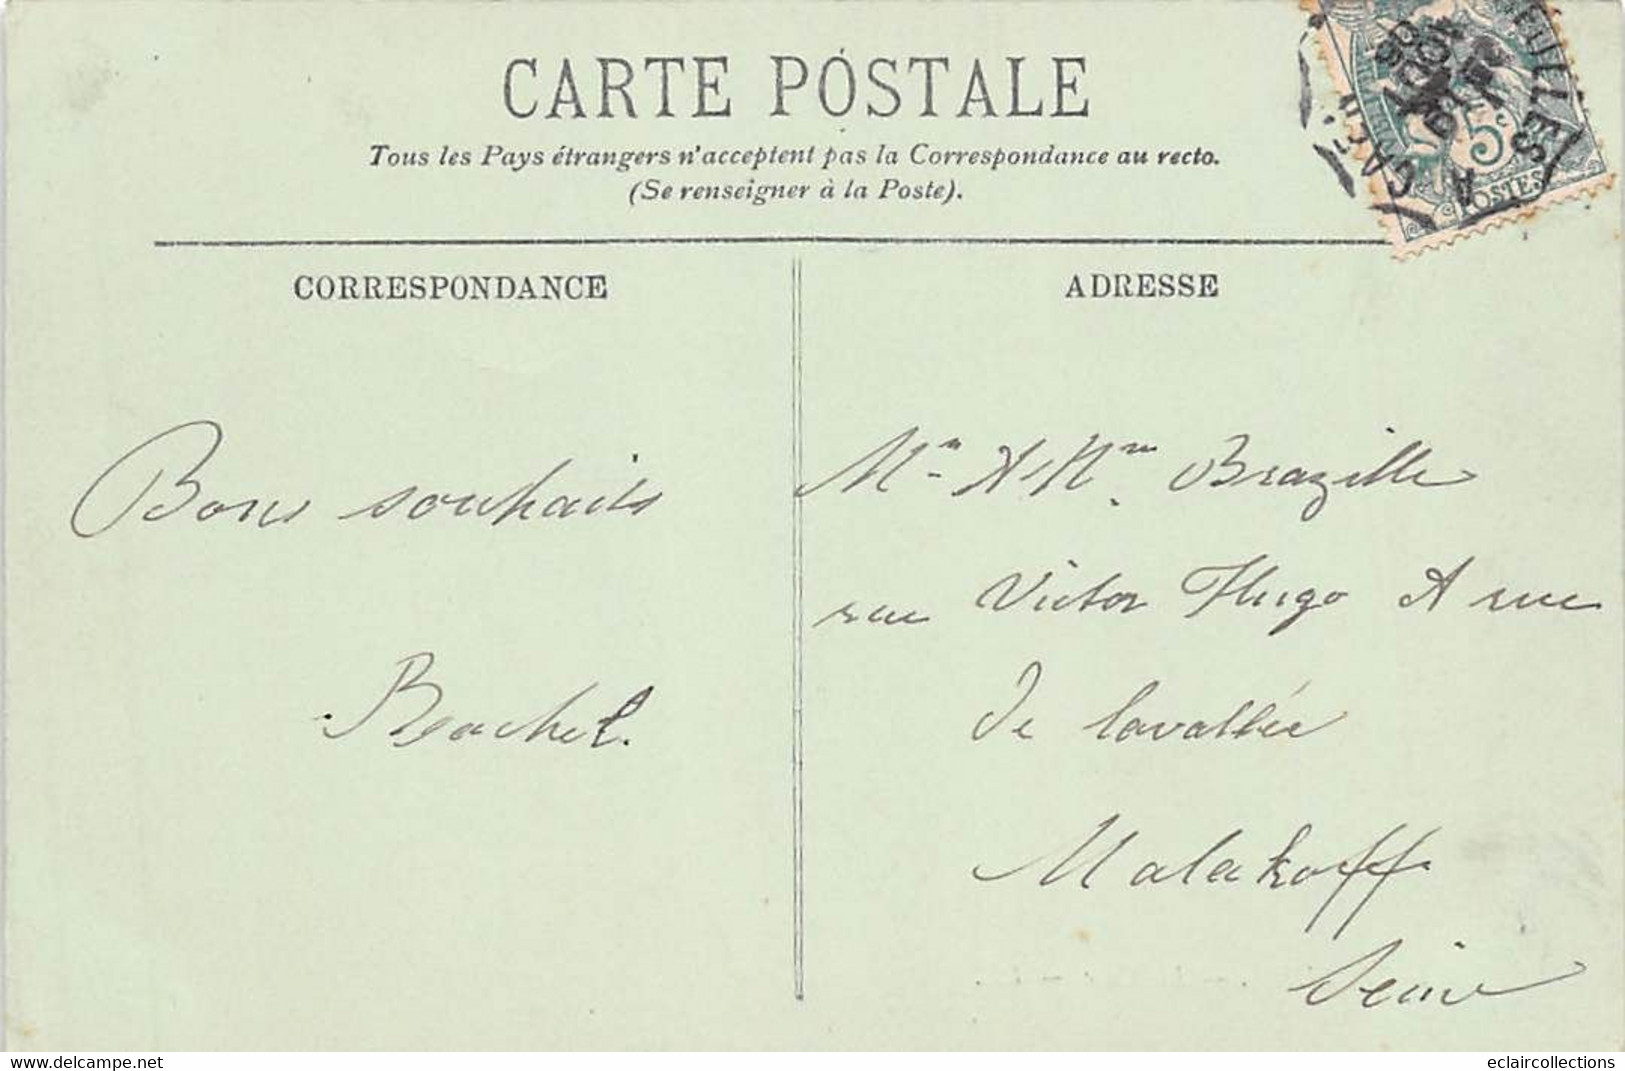 CARTE POSTALE
Tous les Pays étrangers n'acceptent pas la Correspondance au recto.
(Se renseigner à la Poste).
CORRESPONDANCE
ADRESSE
5c
POSTES
Bons souhaits
Rachel.
Brazille
rue Victor Hugo
De lavallée
Malakoff
Seine
eclaircollections